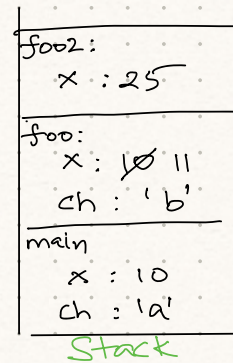 foo2:
x : 25
foo:
x : 10 11
ch : 'b'
main
x : 10
ch : 'a'
Stack